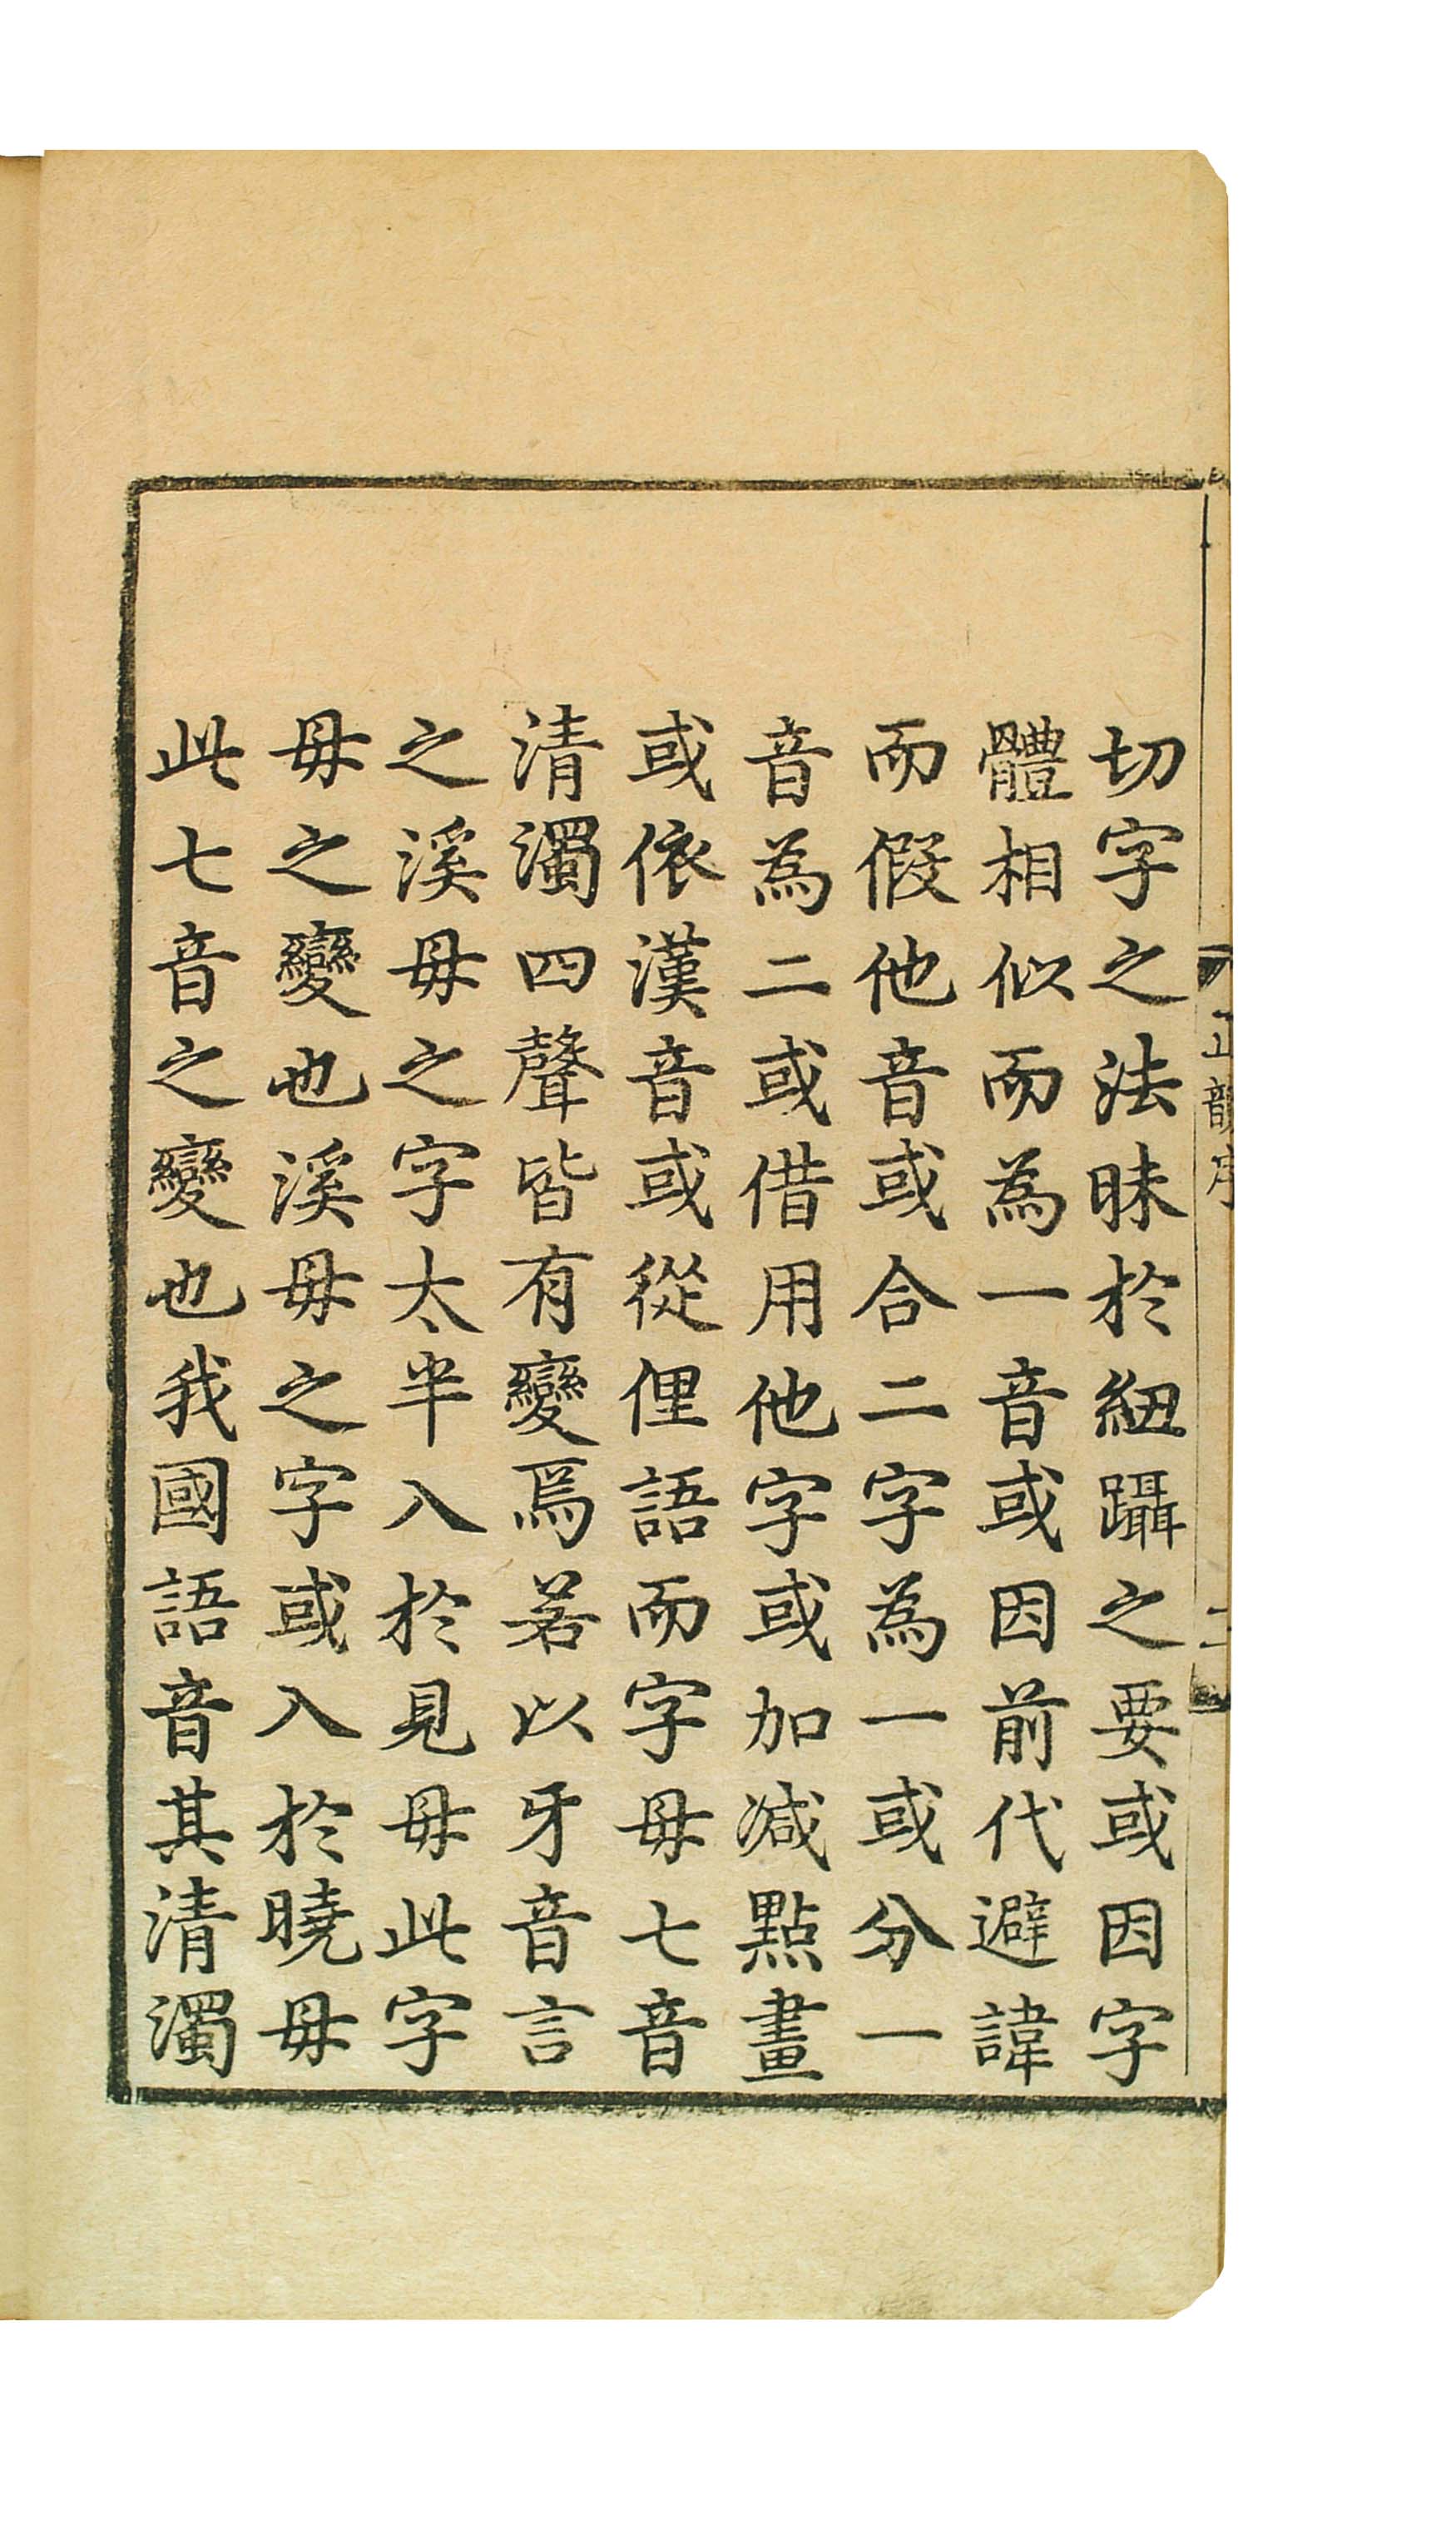 切字之法昧於紐躡之要或因字
體相似而為一音或因前代避諱
而假他音或合二字為一或分一
音為二或借用他字或加减點畫
或依漢音或從俚語而字母七音
清濁四聲皆有變焉若以牙音言
之溪母之字太半入於見母此字
母之變也溪母之字或入於曉母
此七音之變也我國語音其清濁
正韻序
二